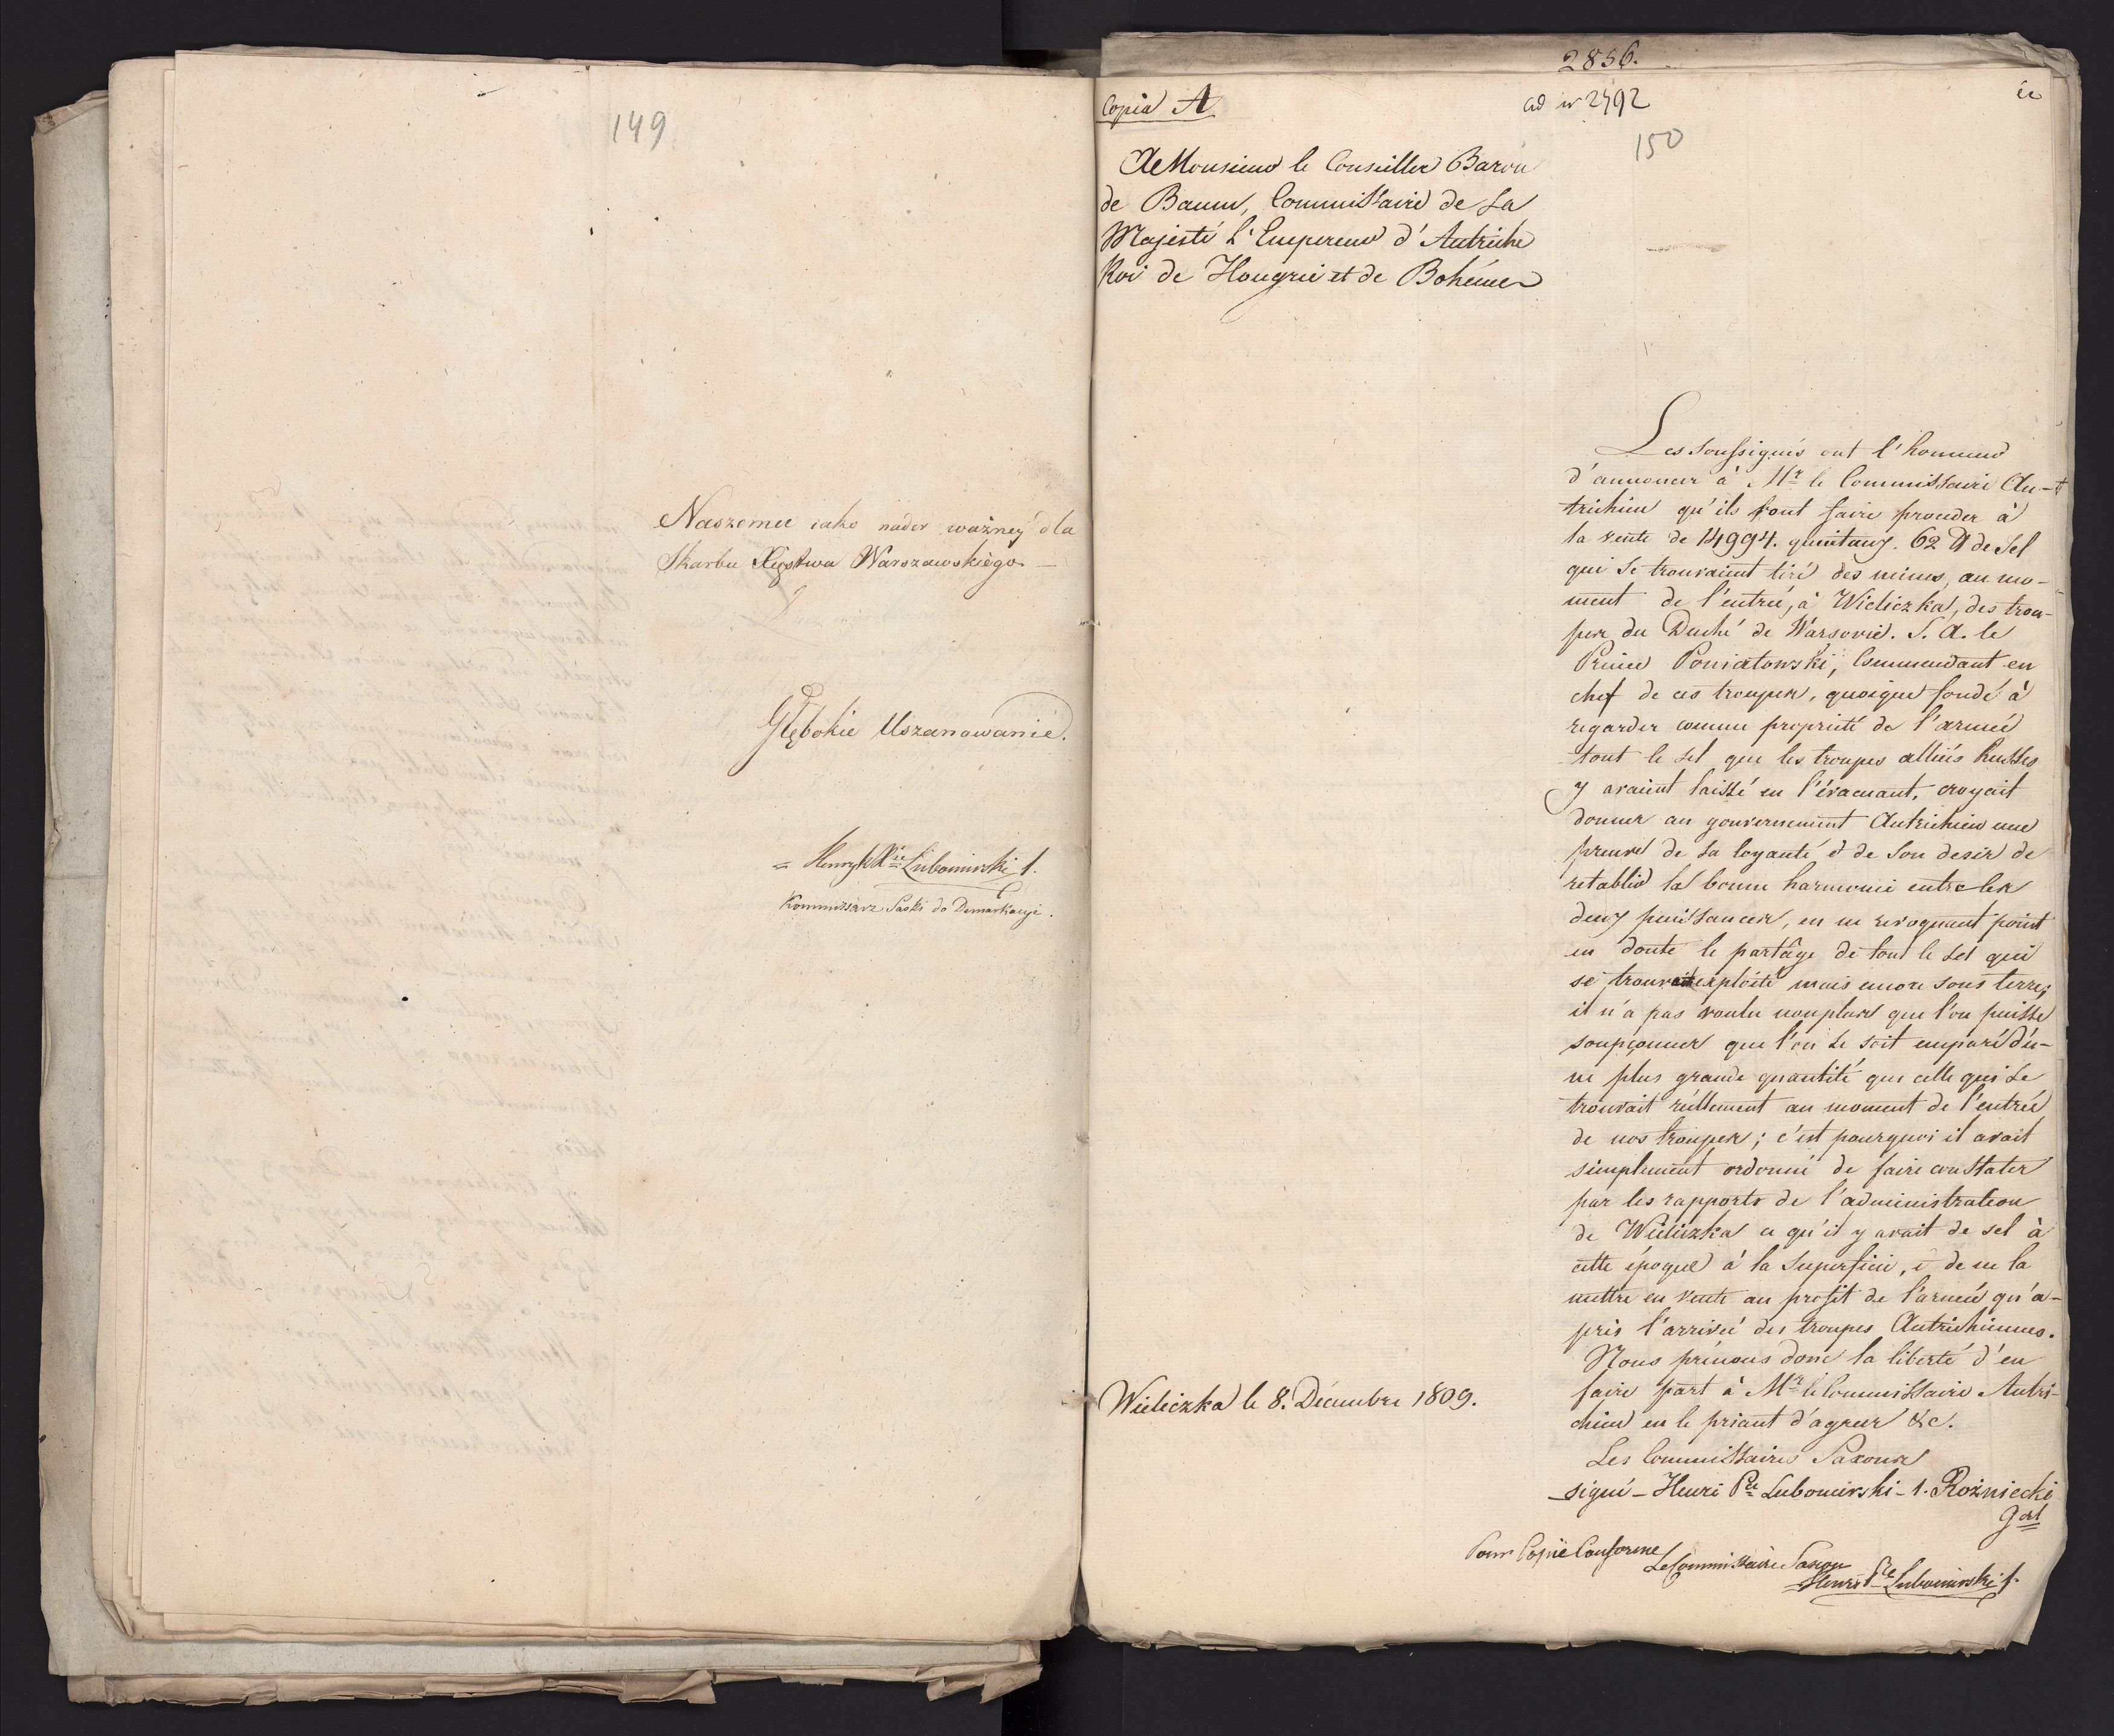 149
Naszemu iako nader ważney dla
Skarbu Xięstwa Warszawskiego —
Głębokie Uszanowanie.
= Henryk Xże Lubomirski 1.
Kommissarz Saski do Demarkacyi.
2856.
Copia A
ad nr 2492
150
A Monsieur le Conseiller Baron
de Baum, Commissaire de Sa
Majesté L'Empereur d'Autriche
Roi de Hongrie et de Bohême
Les Soussignés ont l'honneur
d'annoncer à Mr le Commissaire Au-
trichien qu'ils font faire proceder à
la vente de 14994. quintaux. 62 ℔ de Sel
qui Se trouvaient tiré des mines, au mo-
ment de l'entrée, à Wieliczka, des trou-
pes du Duché de Varsovie. S. A. le
Prince Poniatowski, Commendant en
chef de ces troupes, quoique fondé à
regarder comme proprieté de l'armée
tout le Sel que les troupes alliés Russes
y avaient laissé en l'évacuant, croyait
donner au gouvernement Autrichien une
preuve de Sa loyauté et de Son desir de
retablir la bonne harmonie entre les
deux puissances, en ne revoquant point
en doute le partage de tout le Sel qui
se trouvait exploité mais encore sous terre;
il n'a pas voulu nonplus que l'on puisse
soupçonner que l'on Se soit emparé d'u-
ne plus grande quantité que celle qui Se
trouvait réellement au moment de l'entrée
de nos troupes; c'est pourquoi il avait
simplement ordonné de faire constater
par les rapports de l'administration
de Wieliczka ce qu'il y avait de sel à
cette époque à la Superficie, è de ne la
mettre en vente au profit de l'armée qu'a-
près l'arrivée des troupes Autrichiennes.
Nous prénons donc la liberté d'en
faire part à Mr le Commissaire Autri-
chien en le priant d'agréer &c.
Wieliczka le 8. Décembre 1809.
Les Commissaires Saxons
signé — Henri Pce Lubomirski - 1. Rożniecki
Gal
Pour Copie Conforme
Le Commissaire Saxon
Henri Pce Lubomirski 1.